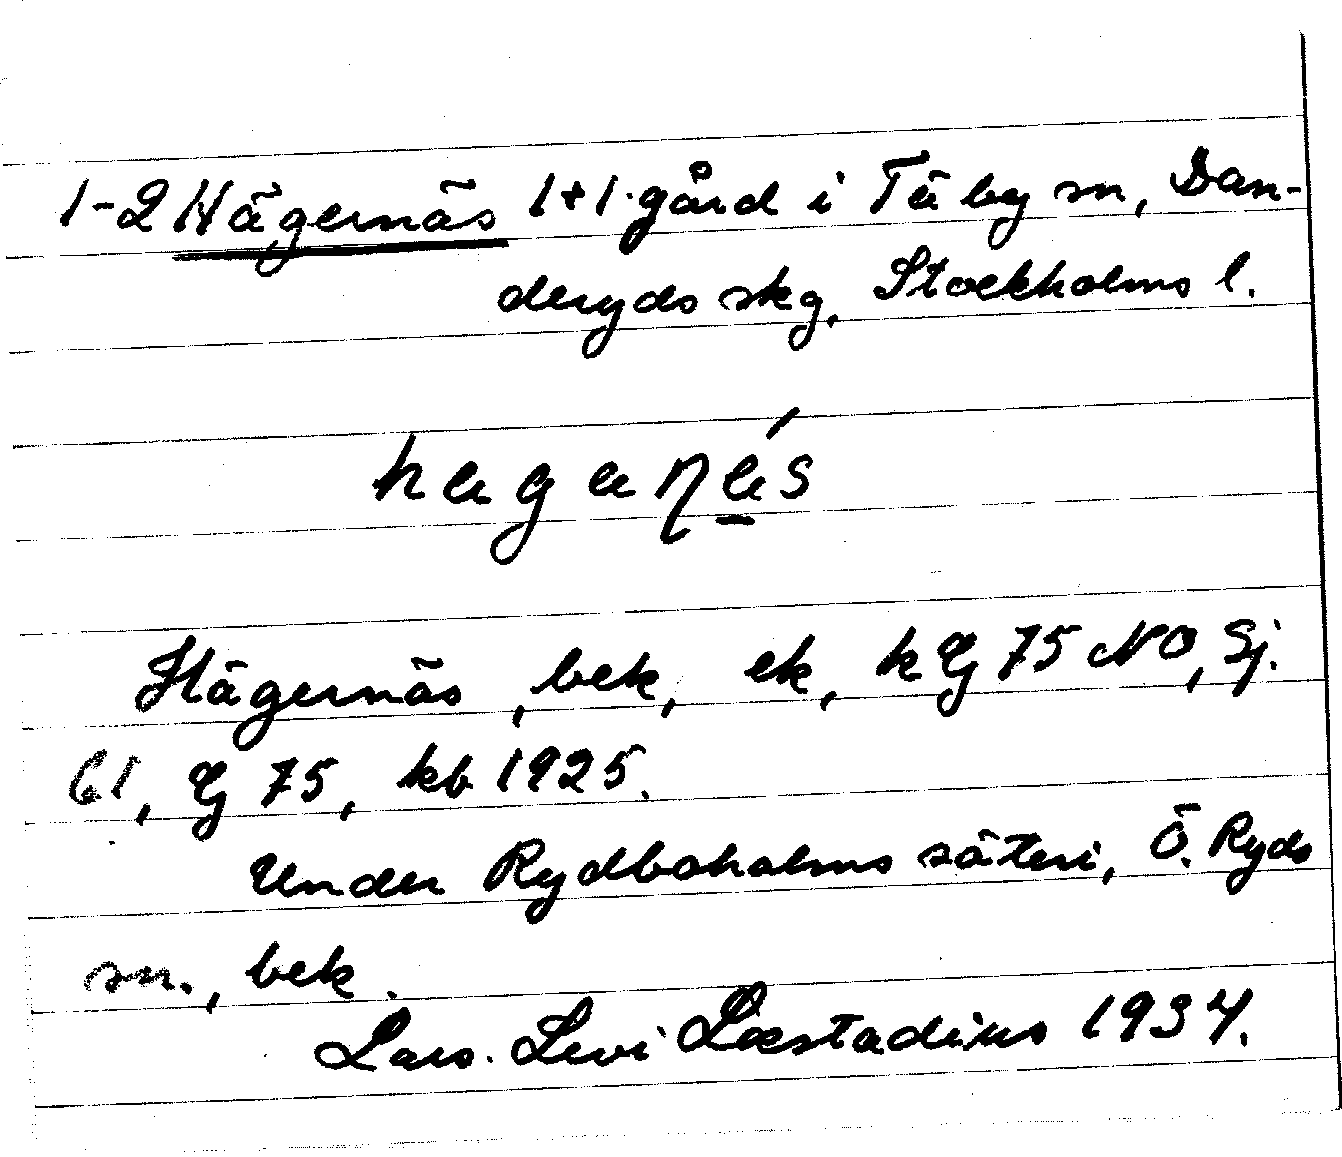 1-2 Hägernäs 1+1 gård i Täby sn, Dan-
deryds skg, Stockholms l.
hegenés
Hägernäs, bek, ek, k G 75 NO, Sj.
61, G 75, kb 1925.
Under Rydboholms säteri, Ö. Ryds
sn., bek.
Lars Levi Læstadius 1934.